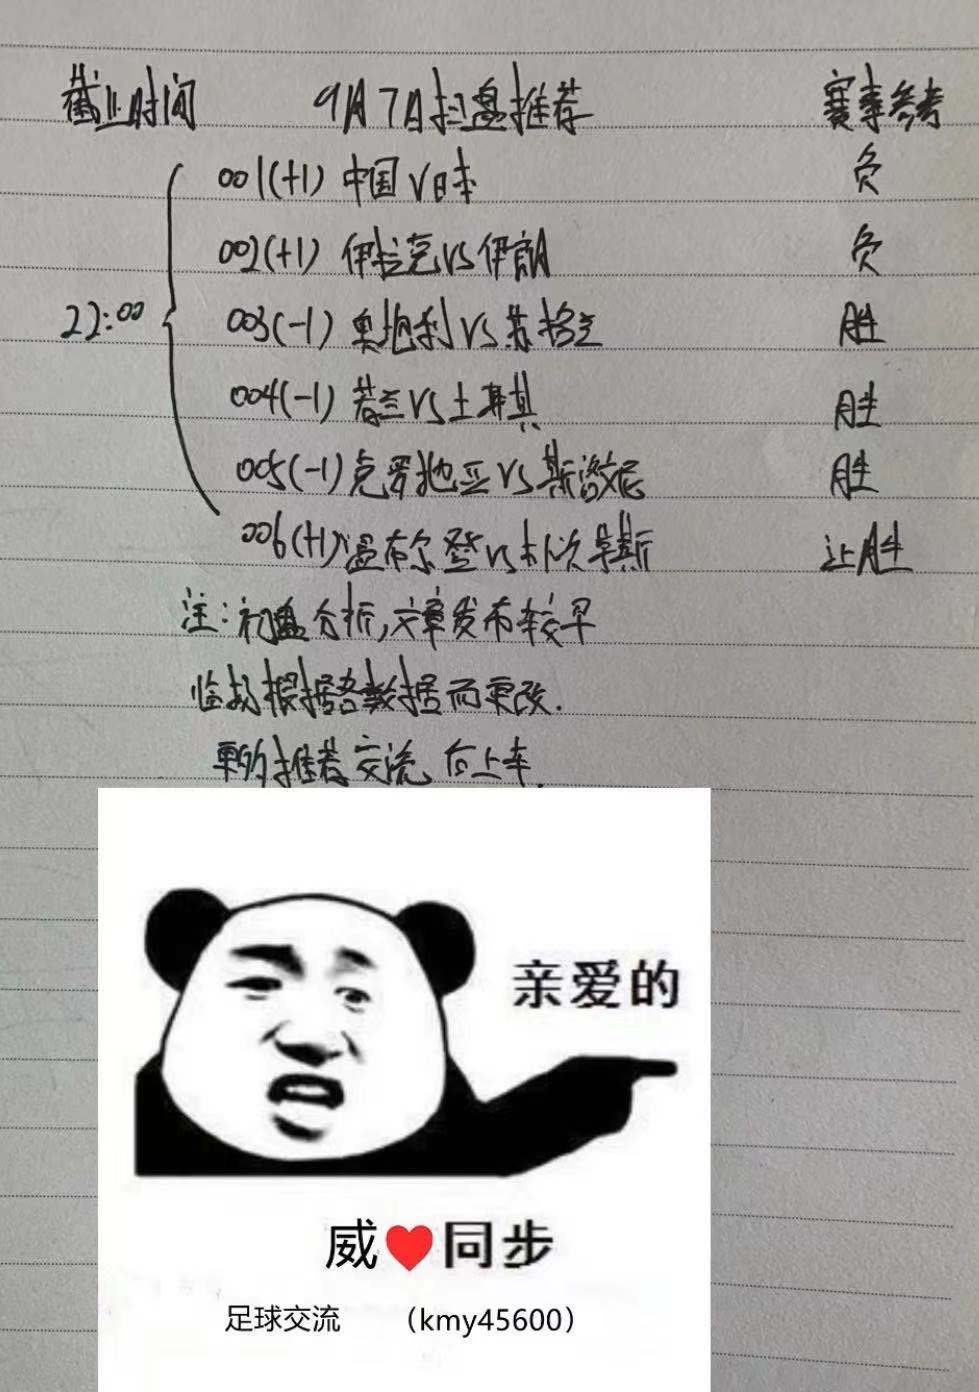 截止时间 9月7日扫盘推荐 赛事参考
001(+1) 中国V日本 负
002(+1) 伊拉克VS伊朗 负
22:00 003(-1) 奥地利VS苏格兰 胜
004(-1) 荷兰VS土耳其 胜
005(-1) 克罗地亚VS斯洛文尼 胜
006(+1) 温布尔登VS朴次毛斯 让胜
注:初盘分析,文章发布较早
临场根据各数据而更改.
更多推荐交流 上车.
亲爱的
威❤同步
足球交流 (kmy45600)